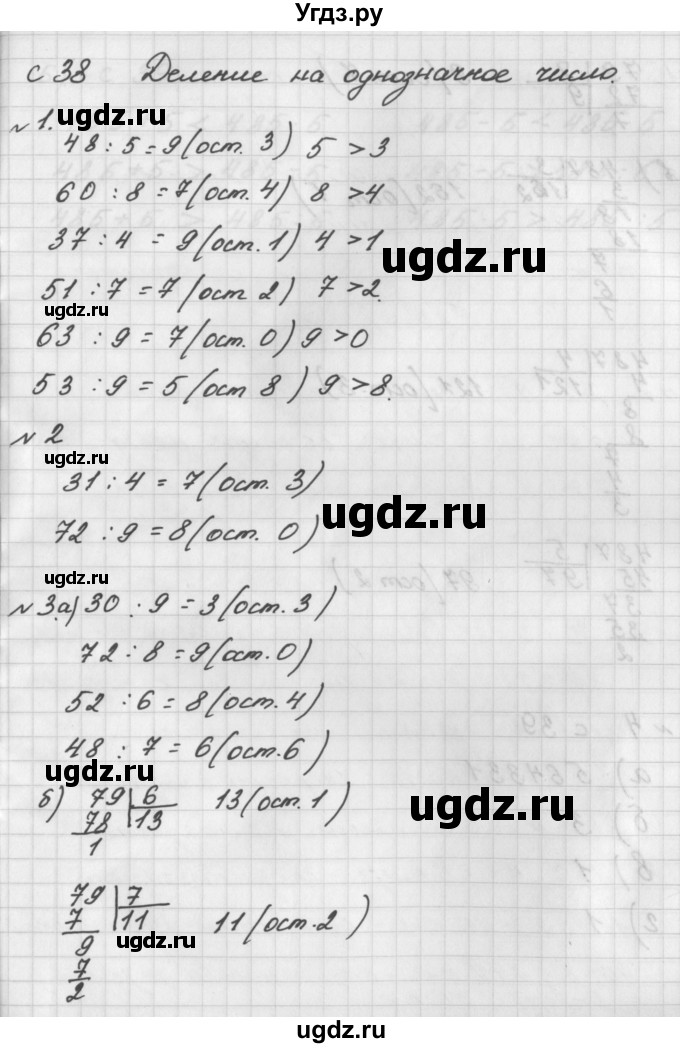 Угдз.ру
с 38 Деление на однозначное число.
ugdz.ru
№ 1.
48 : 5 = 9 (ост. 3) 5 > 3
60 : 8 = 7 (ост. 4) 8 > 4
37 : 4 = 9 (ост. 1) 4 > 1
ugdz.ru
51 : 7 = 7 (ост 2) 7 > 2.
ugdz.ru
63 : 9 = 7 (ост. 0) 9 > 0
53 : 9 = 5 (ост 8) 9 > 8.
№ 2
ugdz.ru
31 : 4 = 7 (ост. 3)
ugdz.ru
72 : 9 = 8 (ост. 0)
ugdz.ru
№ 3. а) 30 : 9 = 3 (ост. 3)
72 : 8 = 9 (ост. 0)
52 : 6 = 8 (ост. 4)
48 : 7 = 6 (ост. 6)
ugdz.ru
б) 79 | 6 13 (ост. 1)
78 | 13
1
79 | 7
7 | 11 11 (ост. 2)
9
ugdz.ru
7
2
ugdz.ru